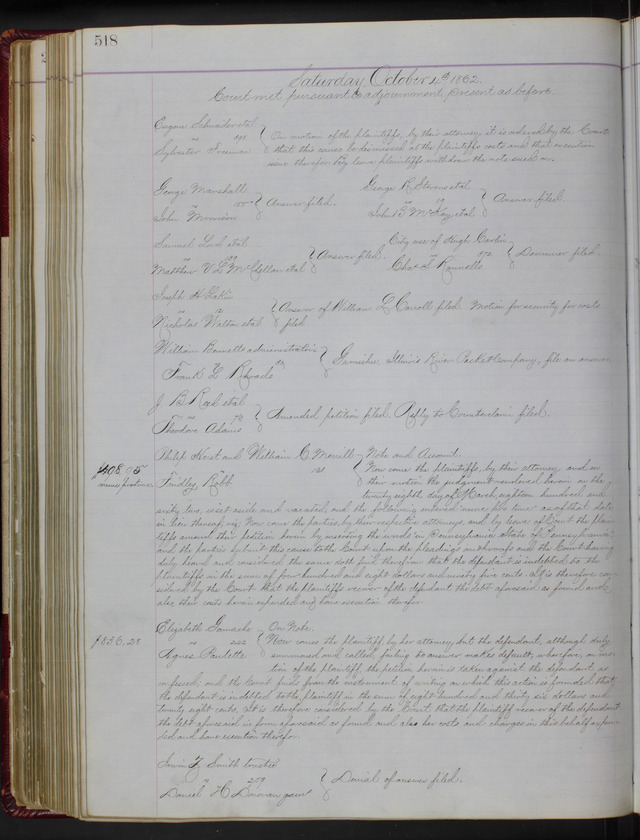 518
Saturday, October 4th 1862.
Court met pursuant to adjournment, present as before
Eugene Schnaider et al
vs
Sylvester Freeman
On motion of the plaintiffs, by their attorney, it is ordered by the Court
that this cause be dismissed at the plaintiffs costs and that execution
issue therefor. By leave plaintiffs withdraw the note sued on.
George Marshall
vs
John Morrison
Answer filed.
George R Stevens et al
vs
John B McKay et al
Answer filed.
Samuel et al
vs
Matthew V L McClellan et al
Answer filed.
City use of Hugh Carlin
vs
Chas L Runnells
Demurrer filed.
Joseph H
vs
Nicholas Walton et al
Answer of William L Carroll filed. Motion for security for costs
filed
William Bennetts administrators
vs
Frank L
Garnishee, Illinois River Packet Company, file an answer
J B et al
vs
Theodore Adams
Amended petition filed. Reply to Counterclaim filed.
Philip and William C Merrill
vs
Findley Robb
Note and Account.
$408.95
nunc pro tunc
Now come the plaintiffs, by their attorney, and on
their motion the judgment rendered herein on the
twenty eighth day of March, eighteen hundred and
sixty two, is set aside and vacated, and the following entered nunc pro tunc as of that date
in lieu thereof, viz Now come the parties, by their respective attorneys, and by leave of Court the plain
tiffs amend their petition herein by inserting the words in Pennsylvania State of Pennsylvania
and the parties submit this cause to the Court upon the pleadings and proofs and the Court having
duly heard and considered the same doth find therefrom that the defendant is indebted to the
plaintiffs in the sum of four hundred and eight dollars and ninety five cents. It is therefore con
sidered by the Court that the plaintiffs recover of the defendant the debt aforesaid as found and
also their costs herein expended and have execution therefor.
Elizabeth Gamache
vs 222
Agnes Paulette
On Note.
$836.28
Now comes the plaintiff by her attorney, but the defendant, although duly
summoned and called, failing to answer makes default, wherefore, on mo
tion of the plaintiff, the petition herein is taken against the defendant as
confessed, and the Court finds from the instrument of writing on which this action is founded that
the defendant is indebted to the plaintiff in the sum of eight hundred and thirty six dollars and
twenty eight cents. It is therefore considered by the Court that the plaintiff recover of the defendant
the debt aforesaid in form aforesaid as found and also her costs and charges in this behalf expen
ded and have execution therefor.
Irwin Z Smith trustee
vs 279
Daniel H Donovan
Denial of answer filed.